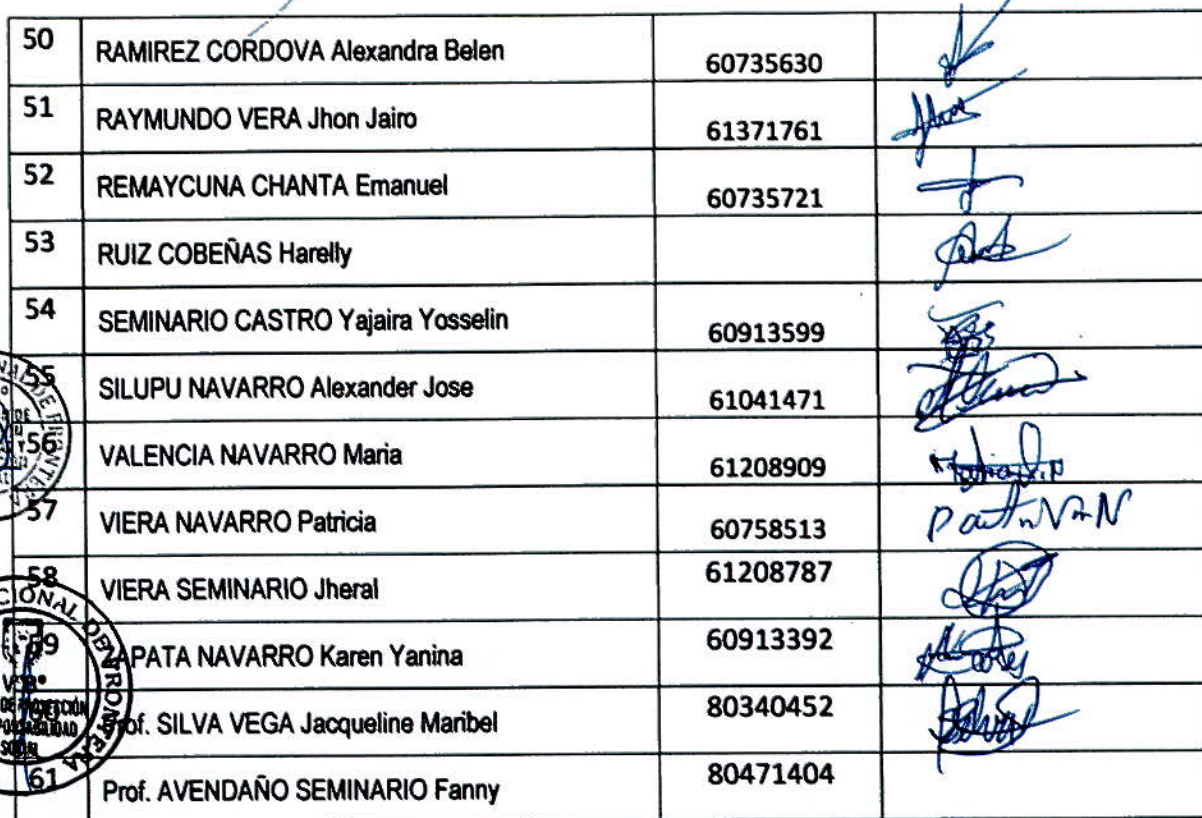 50 RAMIREZ CORDOVA Alexandra Belen 60735630
51 RAYMUNDO VERA Jhon Jairo 61371761
52 REMAYCUNA CHANTA Emanuel 60735721
53 RUIZ COBEÑAS Harelly
54 SEMINARIO CASTRO Yajaira Yosselin 60913599
55 SILUPU NAVARRO Alexander Jose 61041471
56 VALENCIA NAVARRO Maria 61208909
57 VIERA NAVARRO Patricia 60758513
58 VIERA SEMINARIO Jheral 61208787
59 ZAPATA NAVARRO Karen Yanina 60913392
Prof. SILVA VEGA Jacqueline Maribel 80340452
61 Prof. AVENDAÑO SEMINARIO Fanny 80471404